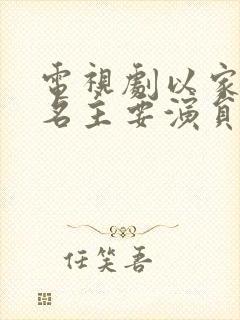 電視劇以家
名主要演員
任笑吾